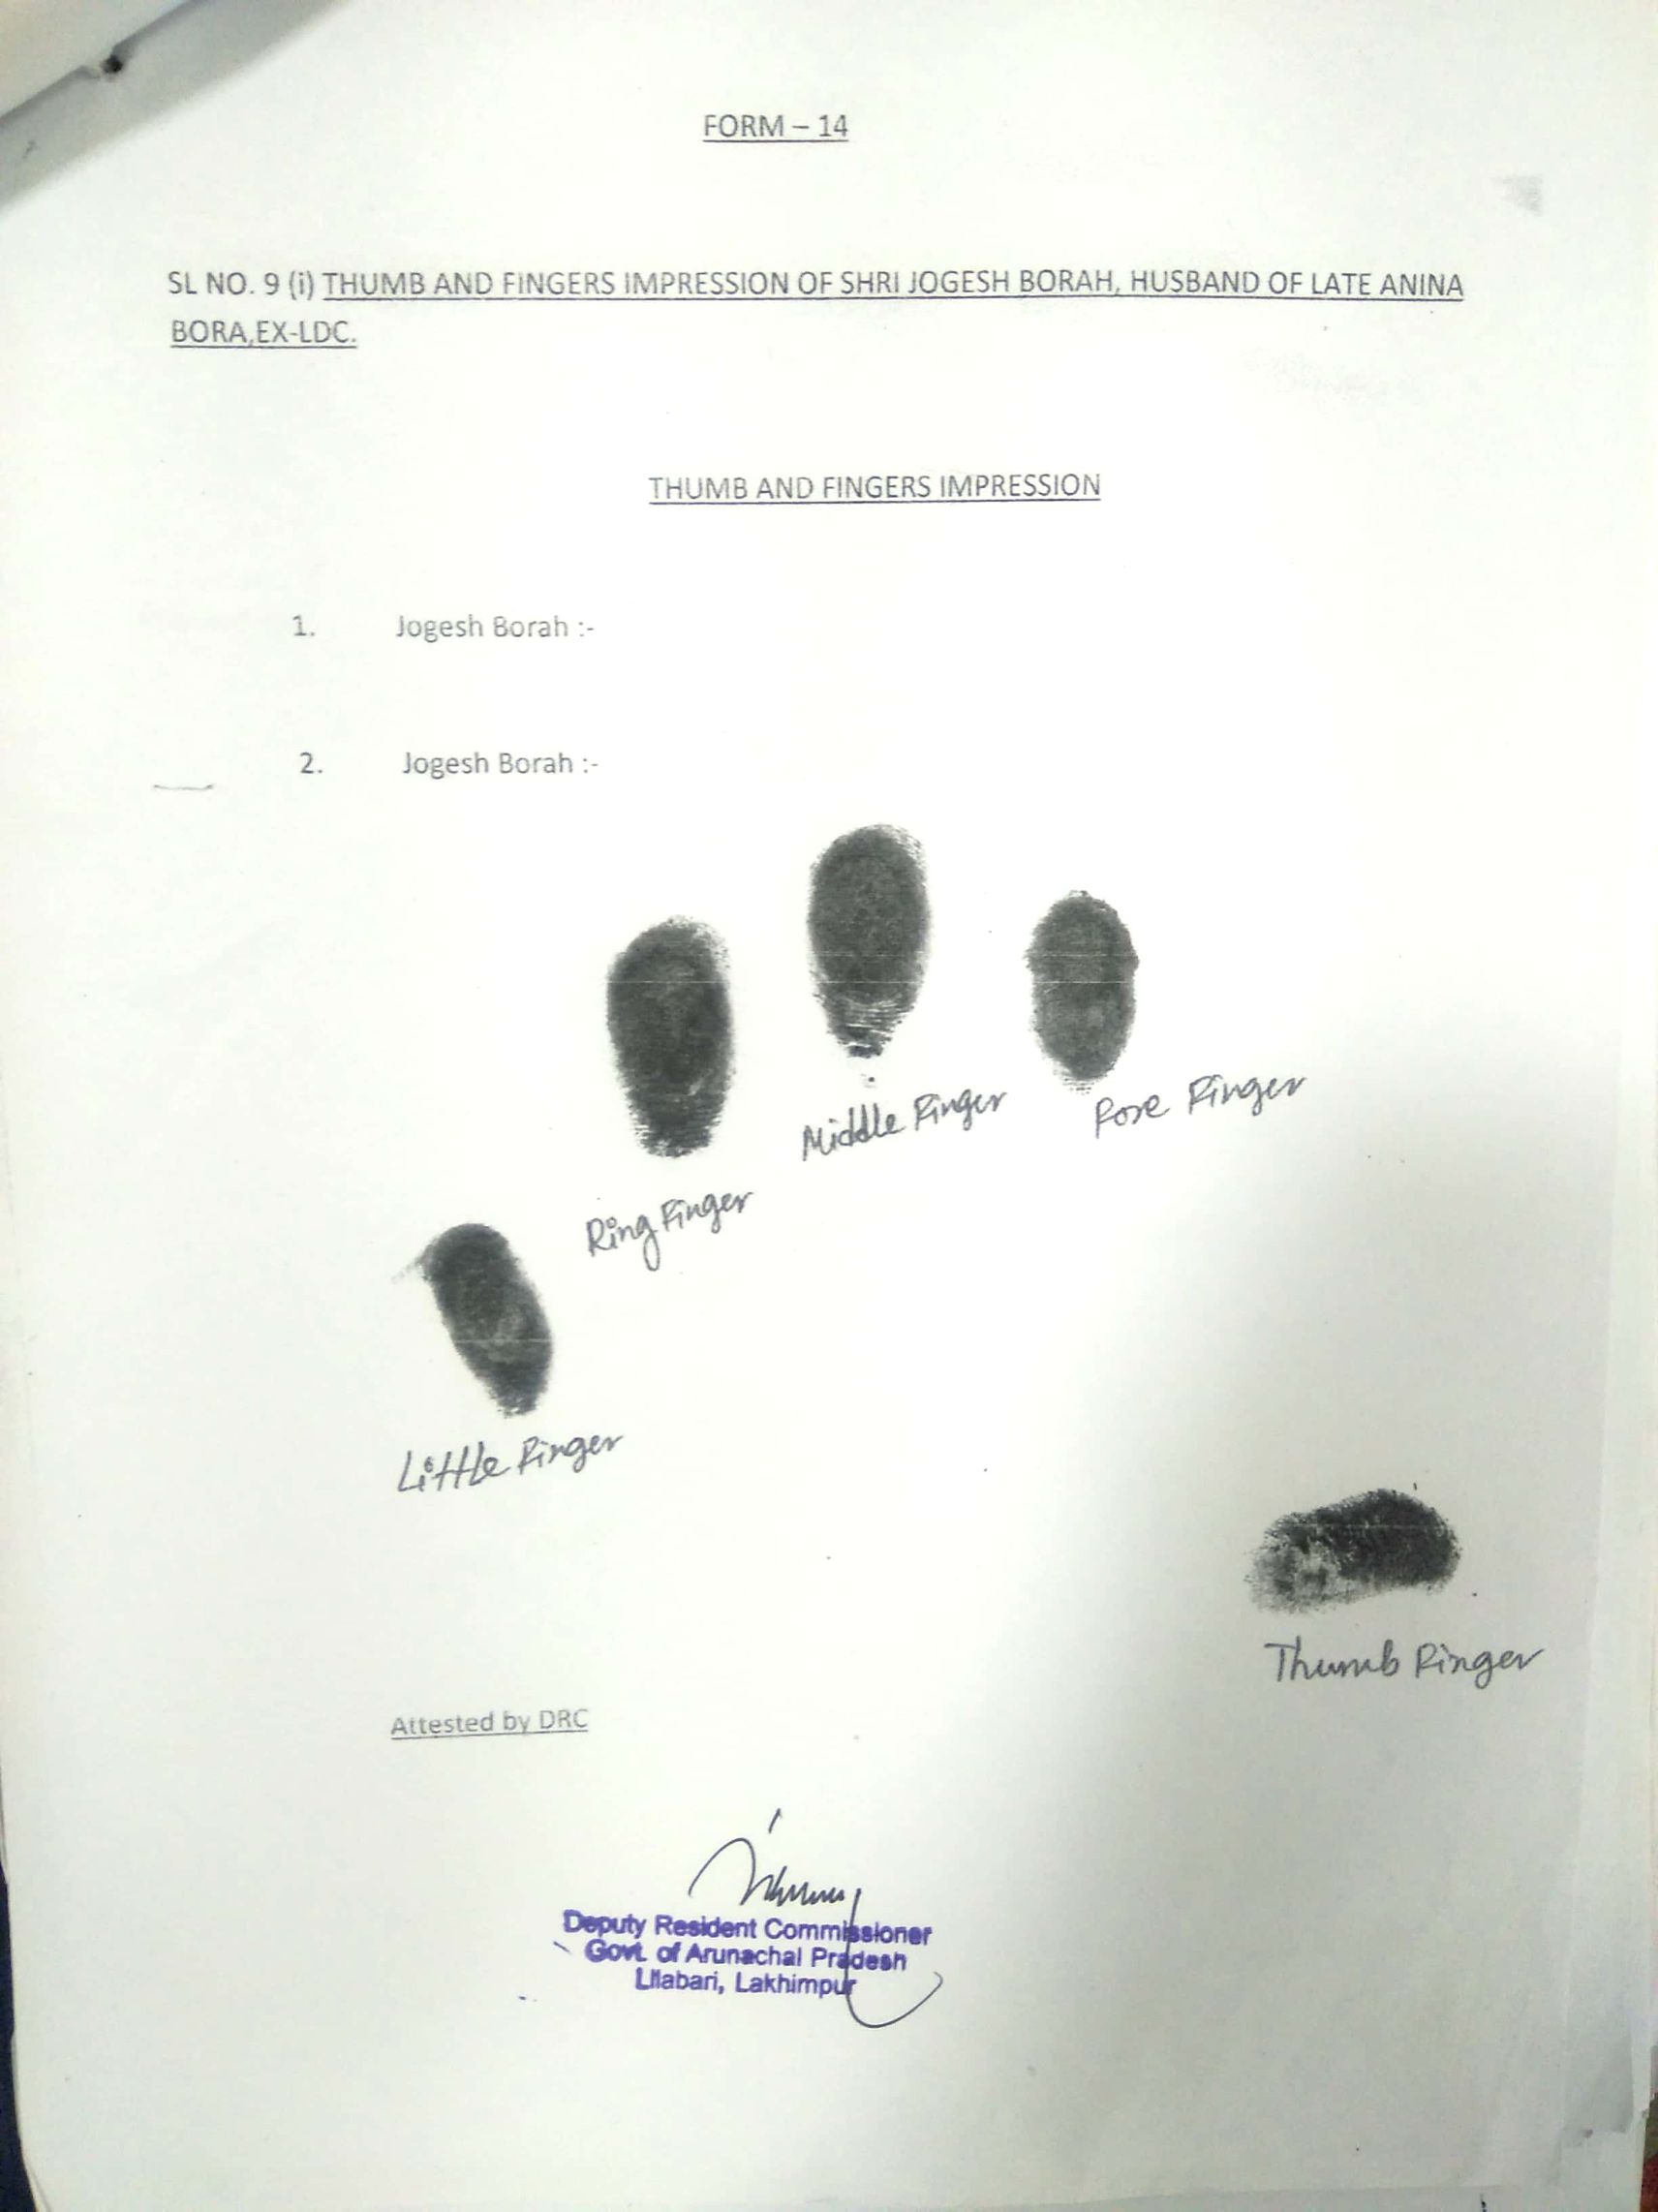 FORM – 14
SL NO. 9 (i) THUMB AND FINGERS IMPRESSION OF SHRI JOGESH BORAH, HUSBAND OF LATE ANINA
BORA,EX-LDC.
THUMB AND FINGERS IMPRESSION
1. Jogesh Borah :-
2. Jogesh Borah :-
Middle Finger
Fore Finger
Ring Finger
Little Finger
Thumb Finger
Attested by DRC
Deputy Resident Commissioner
Govt. of Arunachal Pradesh
Lilabari, Lakhimpur